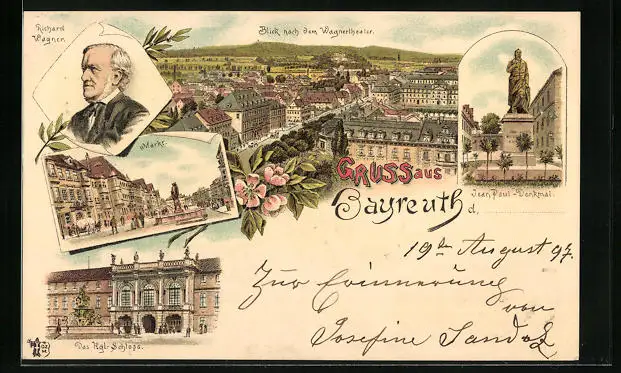 Richard
Wagner.
Blick nach dem Wagnertheater.
Markt.
GRUSS aus
Bayreuth
d,
Jean Paul-Denkmal.
19ten August 97.
Zur Erinnerung
von
Josefine
Das Kgl. Schloss.